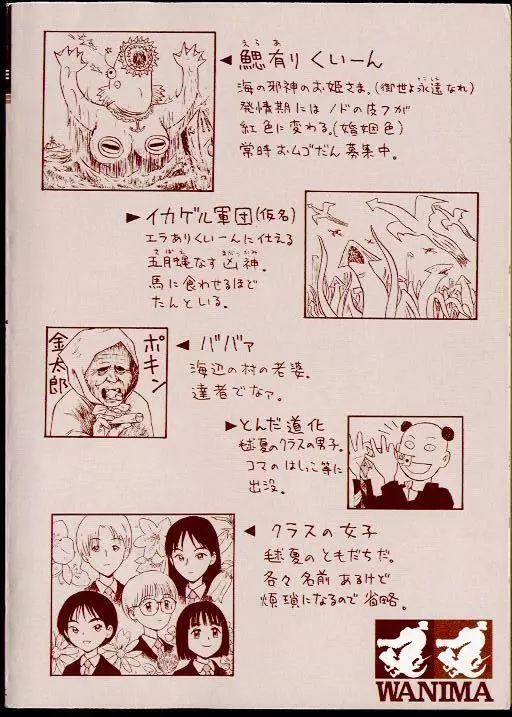 ◀ 鰓有りくいーん
えらあ
海の邪神のお姫さま。(御世よ永遠なれ)
とこしえ
発情期にはノドの皮フが
紅色に変わる。(婚姻色)
常時おムコだん募集中。
▶ イカゲル軍団(仮名)
エラありくいーんに仕える
五月蝿なす凶神。
さばえ まがつかみ
馬に食わせるほど
たんといる。
ポキン
金太郎
◀ ババァ
海辺の村の老婆。
達者でなァ。
▶ とんだ道化
毬夏のクラスの男子。
コマのはしっこ等に
出没。
◀ クラスの女子
毬夏のともだちだ。
各々名前あるけど
煩瑣になるので省略。
WANIMA